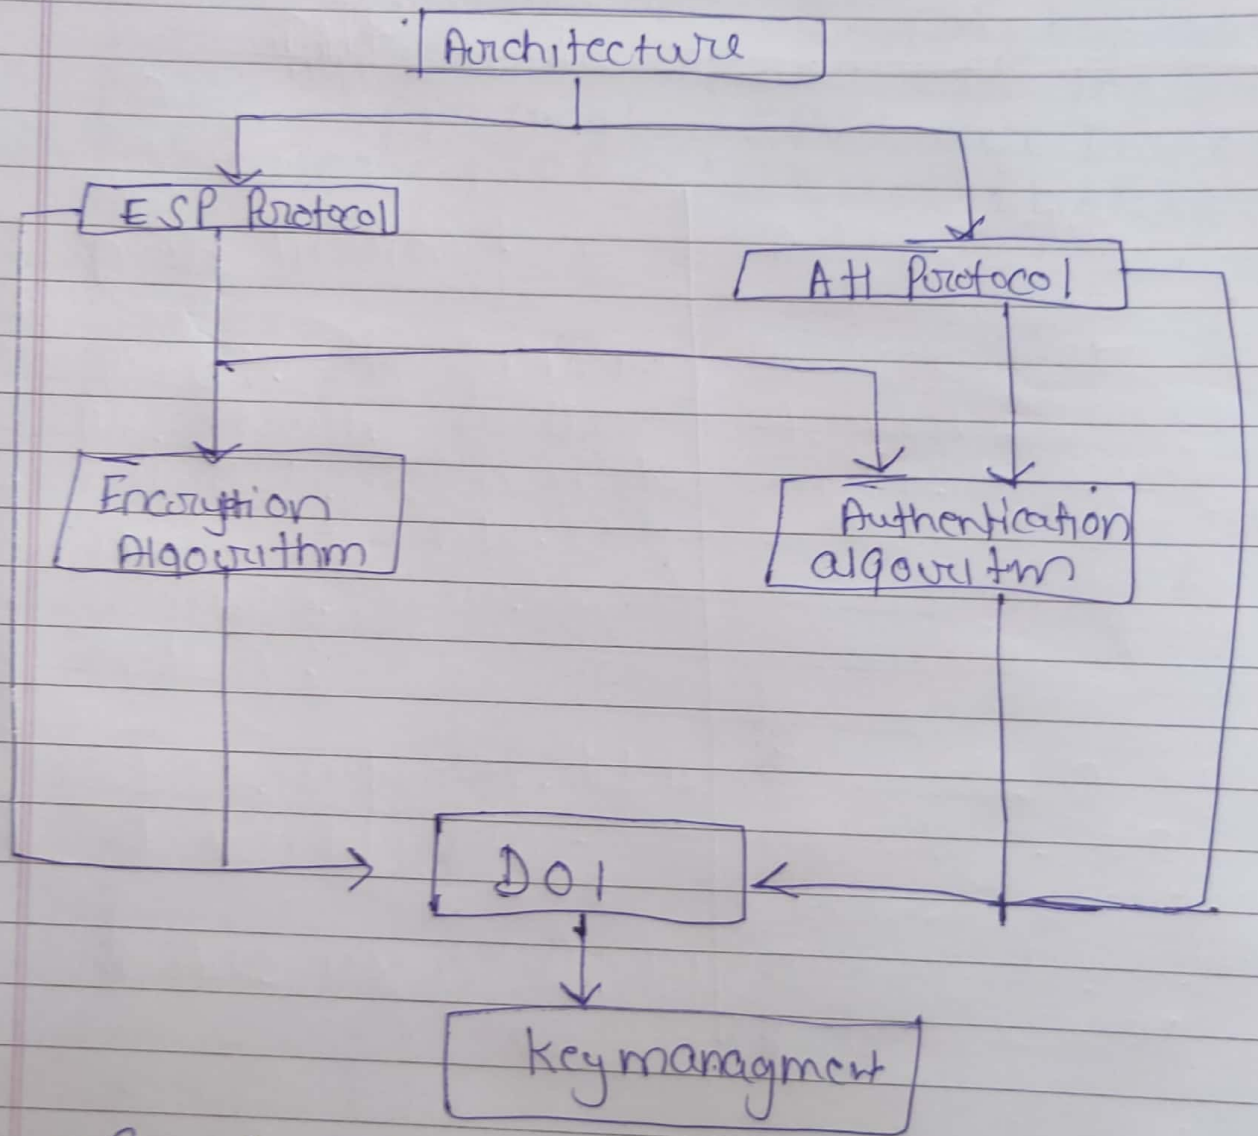 Architecture
ESP Protocol
AH Protocol
Encryption
Algorithm
Authentication
algoritm
DOI
Key managment